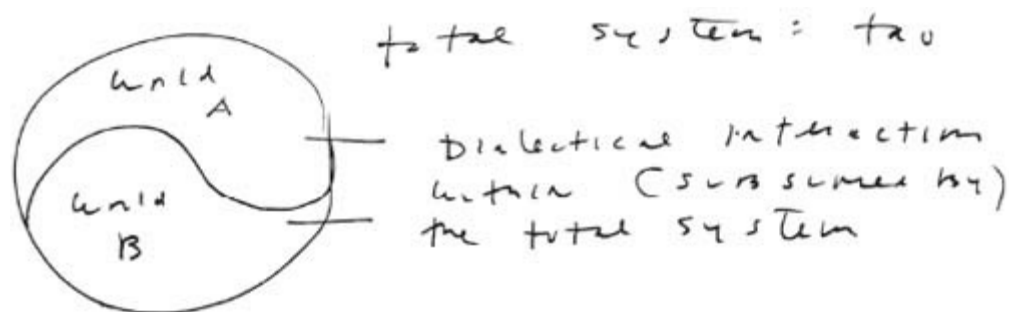 total system: tao
World
A
Dialectical interaction
within (subsumed by)
the total system
World
B